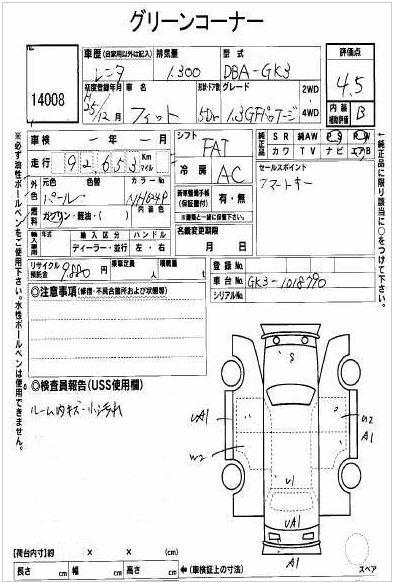 グリーンコーナー
14008
車歴(自家用以外は記入) 排気量 型式 評価点
レンタ 1.300 DBA-GK3 4.5
初度登録年月 車名 形状・ドア数 グレード 2WD・4WD
H25/12月 フィット 5Dr 1.3GFパッケージ
内装補助評価 B
車検 ー 年 ー 月
シフト FAT
純正品 SR 純AW PS PW
カワ TV ナビ エアB
走行 92,653 Km マイル
冷房 AC
セールスポイント
スマートキー
外色 元色 色替 カラーNo
パール NH624P
燃料 ガソリン・軽油・( ) 内装色
新車整備手帳(保証書付) 有・無
※書類と一緒に保管下さい。
名義変更期限
月 日
輸入車 輸入区分 ハンドル
ディーラー・並行 左・右
リサイクル預託金 9,880円 乗車定員 人 積載量 t
登録No.
車台No. GK3-1018790
シリアルNo.
◎注意事項(修復・不具合箇所および状態等)
◎検査員報告(USS使用欄)
ルーム内キズ・小汚れ
S
UA1
A1
U2
W2
A1
U1
UA1
A1
【荷台内寸】約 × × (cm)
長さ cm 幅 cm 高さ cm ←(車検証上の寸法)
スペア
※必ず油性ボールペンをご使用下さい。水性ボールペンは使用できません。
←純正品に限り該当に○をつけて下さい。